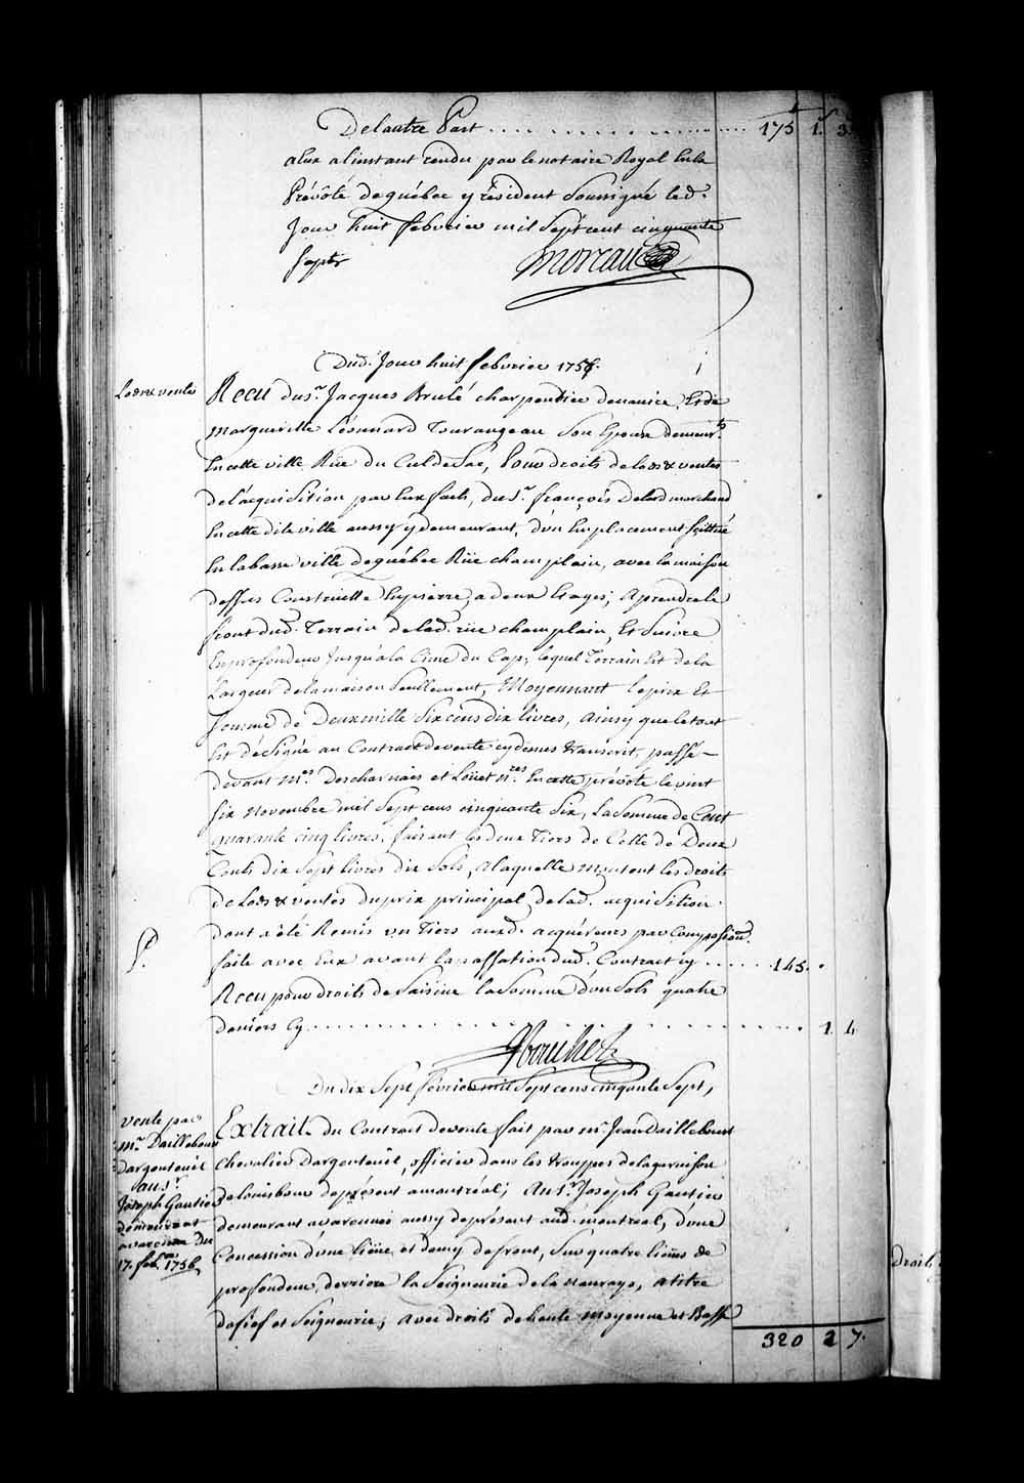 De lautre Part ........................ 175 1. 3.
a Eux a l'instant rendu par le notaire Royal En la
Prévôté de québec y résident Soussigné led.
Jour huit febvrier mil Sept cent cinquante
Sept
Moreau
Dud. Jour huit febvrier 1757.
Lods et vente
Recu du Sr. Jacques Brulé charpentier de navire, Et de
Marguerite Léonnard Tourangeau Son Epouse demeurts.
En cette ville Rüe du CuldeSac, Pour droits de lods & ventes
de l'acquisition par Eux faite, du Sr. françois Delard marchand
En cette dite ville aussy y demeurant, d'un Emplacement scittué
En la basse ville de québec Rüe champlain, avec la maison
dessus Construitte En pierre, a deux Etages; A prendre le
front dud. Terrain de lad. rüe champlain, Et Suivre
En profondeur Jusqu'a la Cime du Cap, lequel Terrain Est de la
Largeur de la maison Seullement, Moyennant le prix Et
somme de Deux mille Six cens dix livres, Ainsy que le tout
Est désigné au Contract de vente cydessus transcrit, passé
devant Mes. Descharnais et Loüet nres. En cette prévôté le vint
six Novembre mil Sept cens cinquante Six, La Somme de Cent
quarante cinq livres, faisant les deux Tiers de Celle de Deux
Cents dix Sept livres dix Sols, A laquelle montent les droits
de Lods & ventes du prix principal de lad. acquisition.
dont a été Remis un Tiers auxd. acquéreurs par Composition
P.
faite avec Eux avant la passation dud. Contract cy ...... 145.
Recu pour droits de Saisine la Somme d'un Sols quatre
deniers Cy ........................ 1. 4.
Du dix Sept février mil Sept cens cinquante Sept,
vente par
Mr. Daillebout
Dargenteüil
au Sr.
Joseph Gautier
demeurant
a varenne Du
17. feb. 1756
Extrait du Contract de vente fait par Mr. Jean Daillebout
Chevalier Dargenteüil, officier dans les trouppes de la garnison
de Louisbour de présent a montréal; Au Sr. Joseph Gautier
demeurant a varennes aussy de présent aud. montreal, d'une
Concession d'une lieüe et demy de front, Sur quatre lieües de
profondeur, derriere la Seigneurie de la Nauraye, a titre
de fief et Seigneurie; avec droits de haute moyenne et Basse
320 2 7.
droits